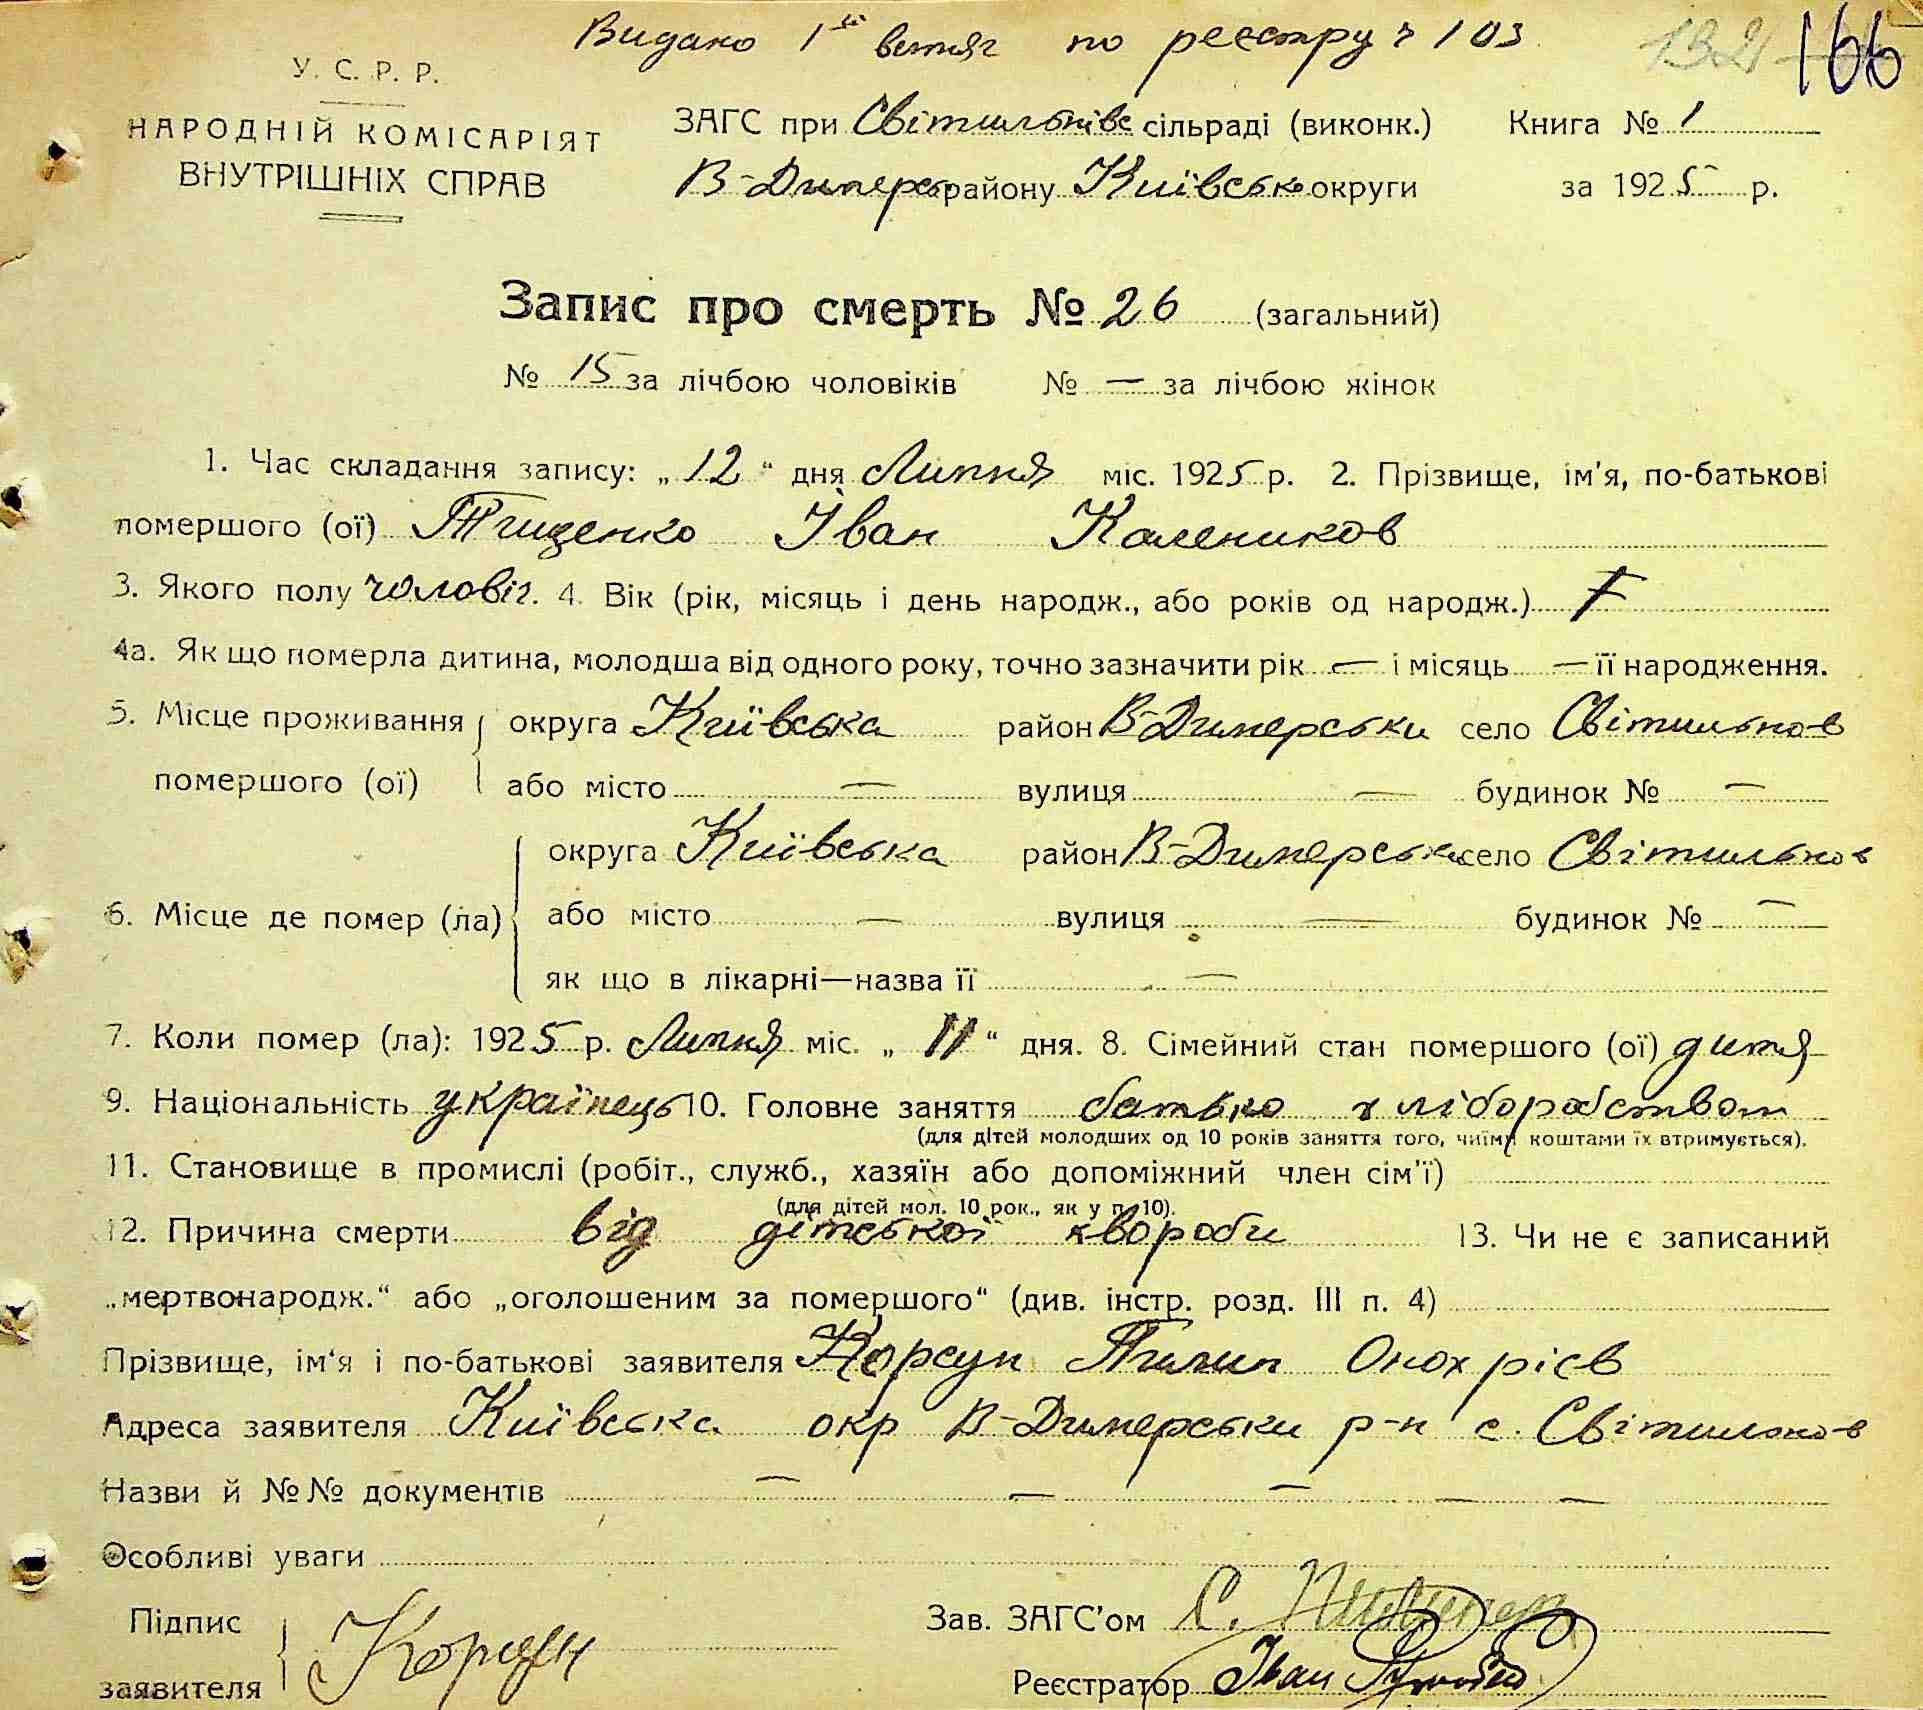 Видано 1ий витяг по реєстру ч 103
132 166
У. С. Р. Р.
НАРОДНІЙ КОМІСАРІЯТ
ВНУТРІШНІХ СПРАВ
ЗАГС при Світильнівс сільраді (виконк.) Книга № 1
В-Димерсь району Київсько округи за 1925 р.
Запис про смерть № 26 (загальний)
№ 15 за лічбою чоловіків № — за лічбою жінок
1. Час складання запису: „12“ дня Липня міс. 1925 р. 2. Прізвище, ім'я, по-батькові
помершого (ої) Тищенко Іван Калеників
3. Якого полу чоловіч. 4. Вік (рік, місяць і день народж., або років од народж.)
4а. Як що померла дитина, молодша від одного року, точно зазначити рік — і місяць — її народження.
5. Місце проживання округа Київська район В-Димерськи село Світильнов
помершого (ої) або місто — вулиця — будинок № —
округа Київська район В-Димерськи село Світильнов
6. Місце де помер (ла) або місто — вулиця — будинок № —
як що в лікарні—назва її —
7. Коли помер (ла): 1925 р. Липня міс. „11“ дня. 8. Сімейний стан помершого (ої) дитя
9. Національність українець 10. Головне заняття батько хліборобством
(для дітей молодших од 10 років заняття того, чиїми коштами їх втримується).
11. Становище в промислі (робіт., служб., хазяїн або допоміжний член сім'ї)
(для дітей мол. 10 рок., як у п. 10).
12. Причина смерти від дітської хвороби 13. Чи не є записаний
„мертвонародж.“ або „оголошеним за помершого“ (див. інстр. розд. III п. 4)
Прізвище, ім'я і по-батькові заявителя Корсун Пилип Онохрієв
Адреса заявителя Київська окр В-Димерськи р-н с. Світильнов
Назви й №№ документів — — — — —
Особливі уваги
Підпис
заявителя Корсун
Зав. ЗАГС'ом С.
Реєстратор Іван